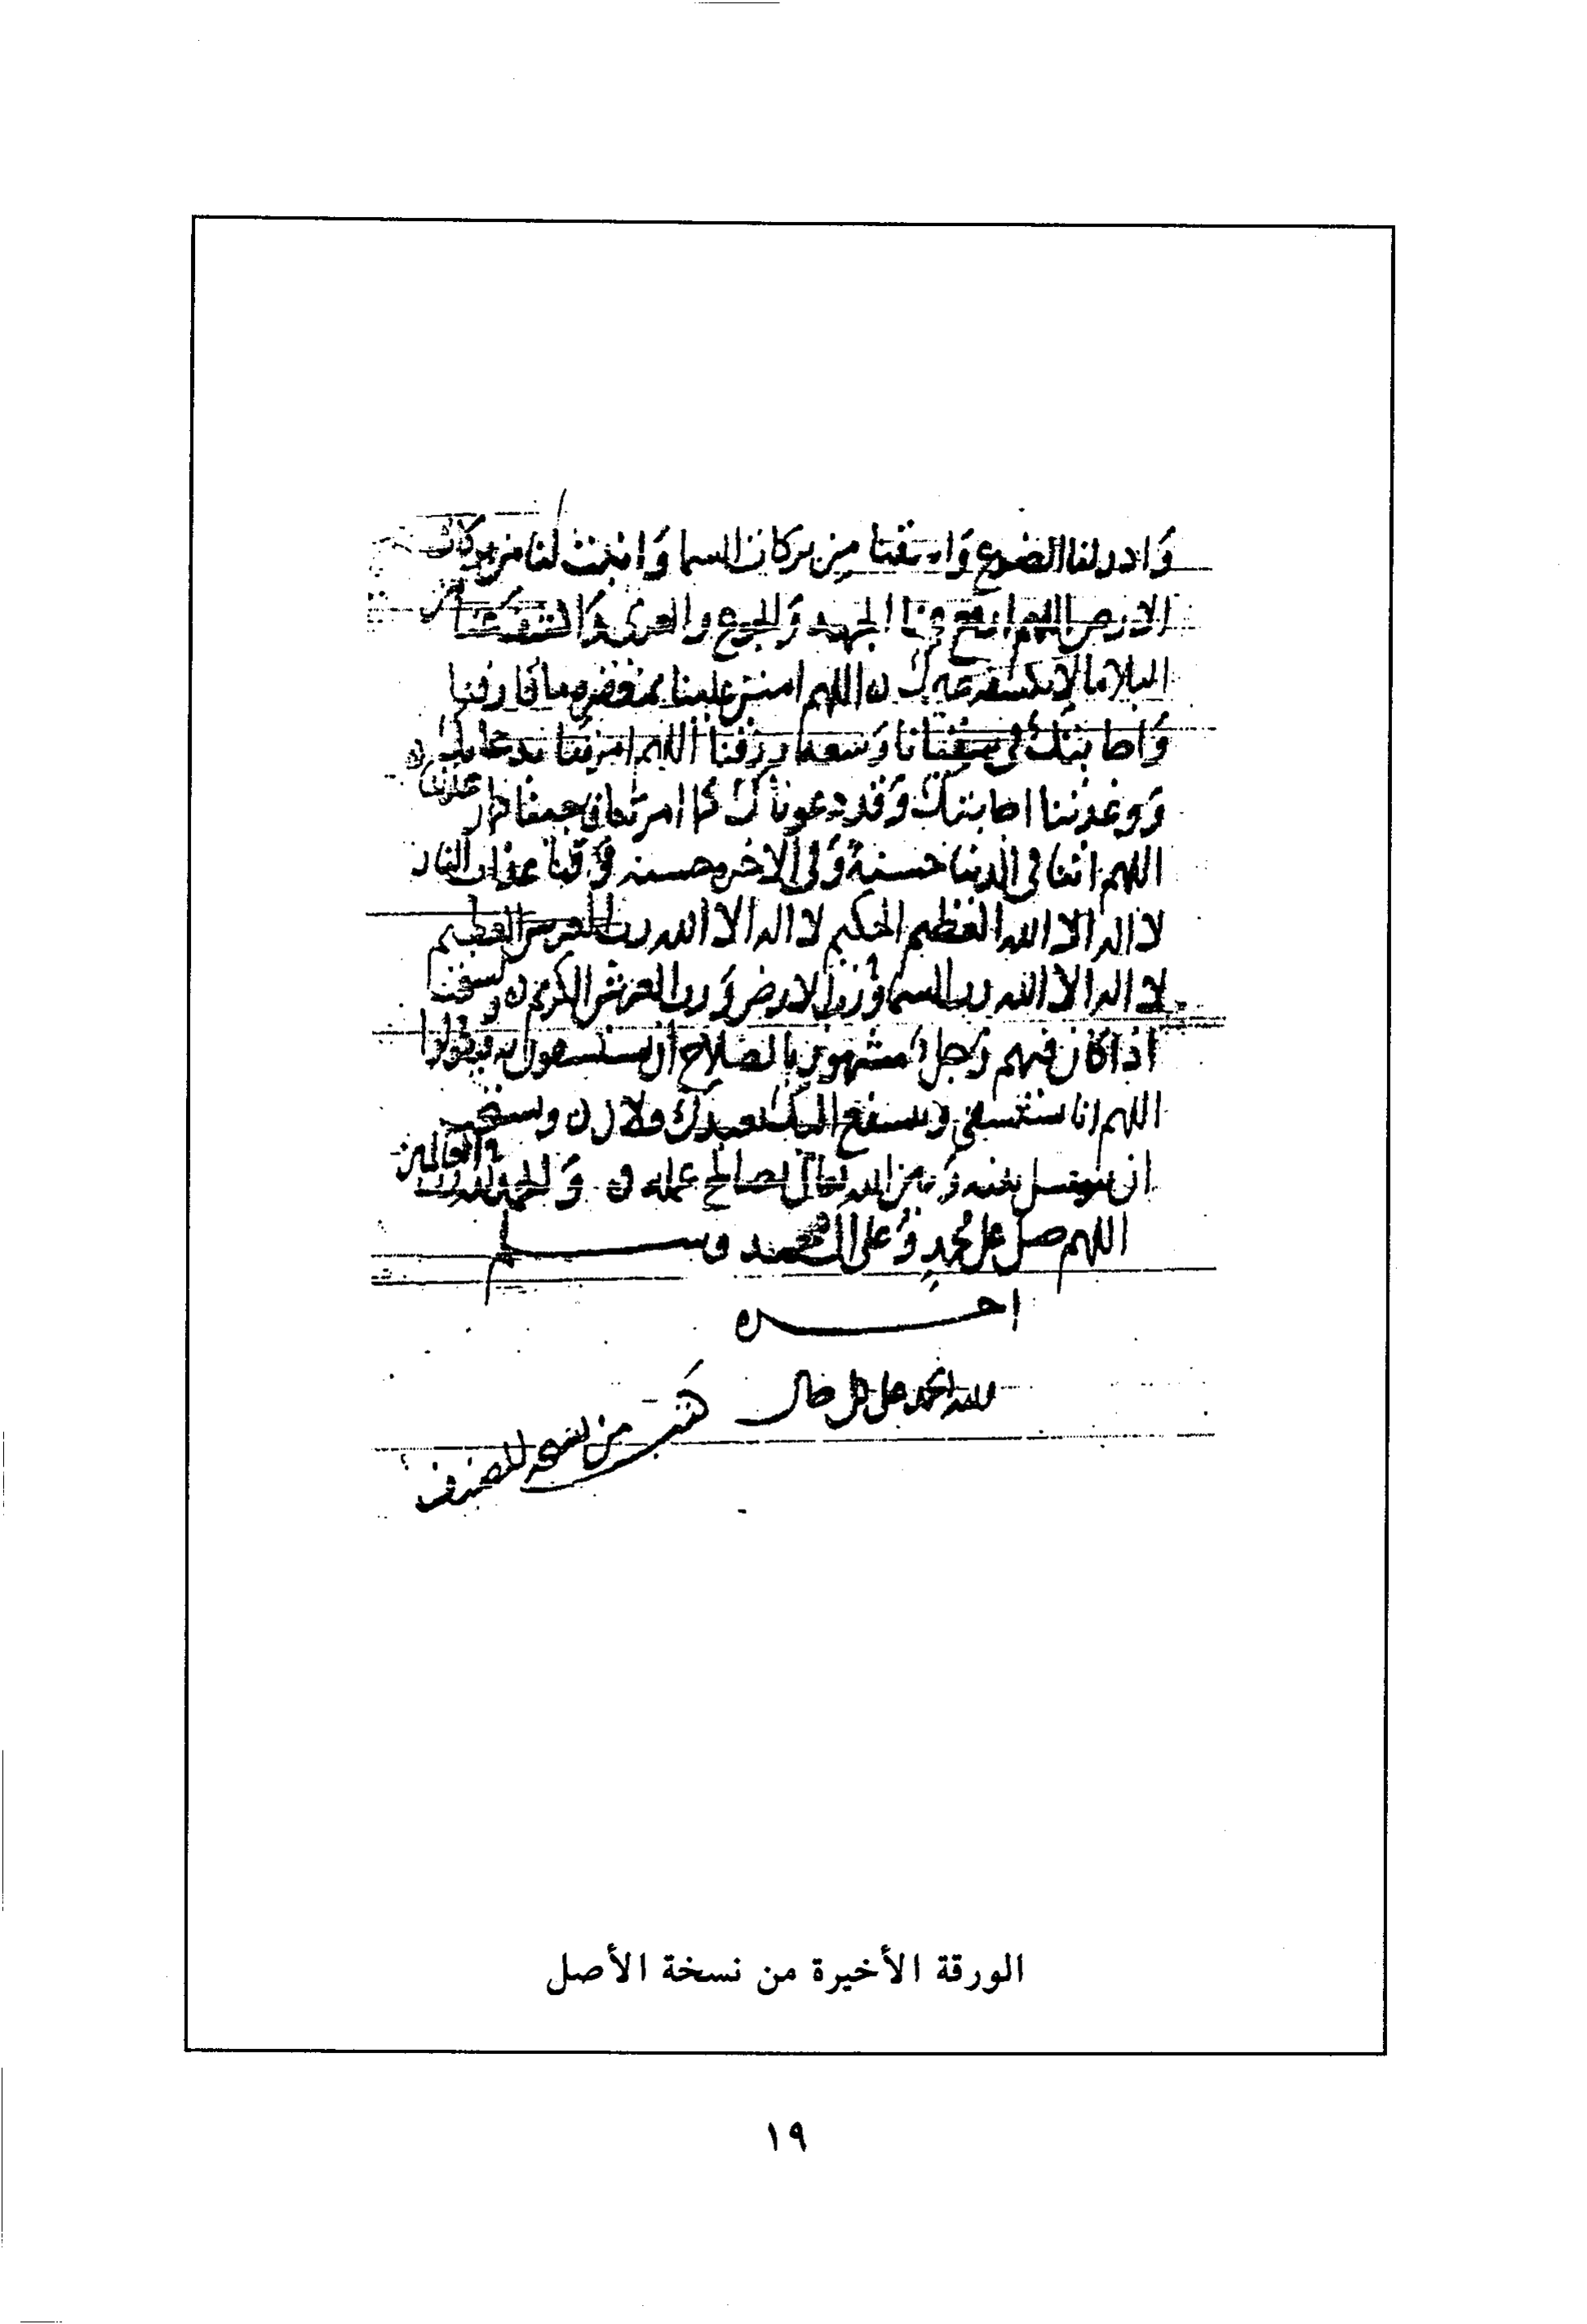 وادر لنا الضرع واسقنا من بركات السما وانبت لنا من بركات
الارض اللهم ارفع عنا الجهد والجوع والعرى واكشف عنا من
البلا ما لا يكشفه غيرك اللهم امنن علينا بمغفره ما قارفنا
واجابتك في سقيانا وسعه رزقنا اللهم امرتنا بدعائك
ووعدتنا اجابتك وقد دعوناك كما امرتنا فاجبنا كما وعدتنا
اللهم اتنا في الدنيا حسنة وفي الاخره حسنه وقنا عذاب النار
لا اله الا الله العظيم الحكيم لا اله الا الله رب العرش العظيم
لا اله الا الله رب السما ورب الارض ورب العرش الكريم ويستحب
اذا كان فيهم رجل مشهور بالصلاح ان يستسقوا به فيقولوا
اللهم انا نستسقي ونستشفع اليك بعبدك فلان ويستحب
ان يتوسل بينه وبين الله تعالى بصالح عمله والحمد لله رب العالمين
اللهم صل على محمد وعلى ال محمد وسلم
اخره
لله الحمد على كل حال
كتب من نسخة المصنف
الورقة الأخيرة من نسخة الأصل
١٩